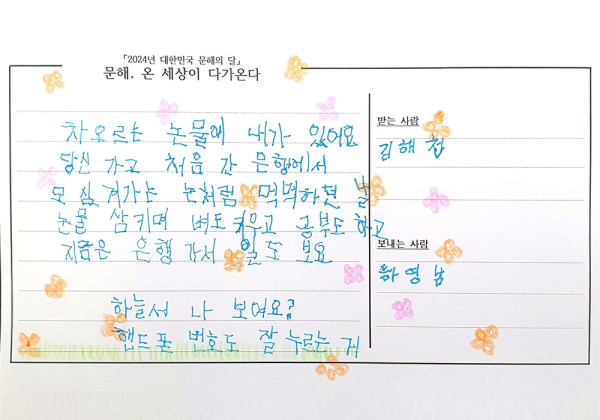 「2024년 대한민국 문해의 달」
문해, 온 세상이 다가온다
차오르는 눈물에 내가 있어요
당신 가고 처음 간 은행에서
모 심겨가는 논처럼 먹먹하던 날
눈물 삼키며 벼도 키우고 공부도 하고
지금은 은행 가서 일도 보요
하늘서 나 보여요?
핸드폰 번호도 잘 누르는 거
받는 사람
김해철
보내는 사람
하영남